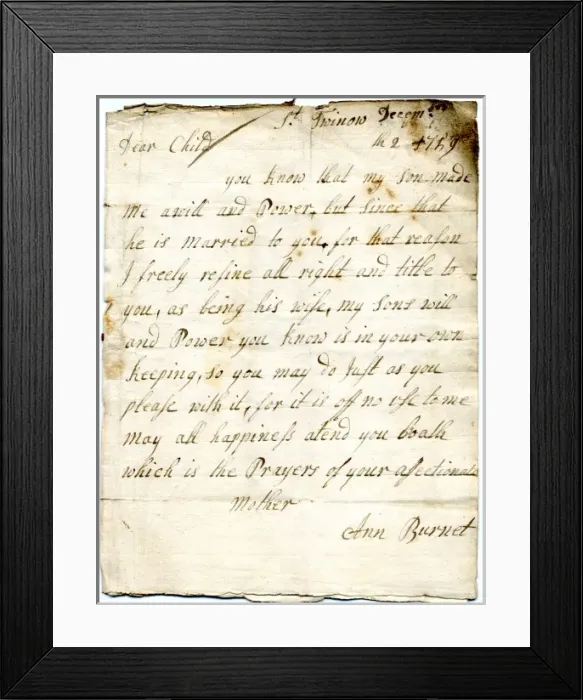 St. Twinow Decembr
Dear Child th 2 1759
you know that my son made
me a will and Power, but since that
he is married to you, for that reason
I freely resine all right and title to
you, as being his wife, my sons will
and Power you know is in your own
keeping, so you may do Just as you
please with it, for it is off no use to me
may all happiness atend you boath
which is the Prayers of your affectionate
Mother
Ann Burnet